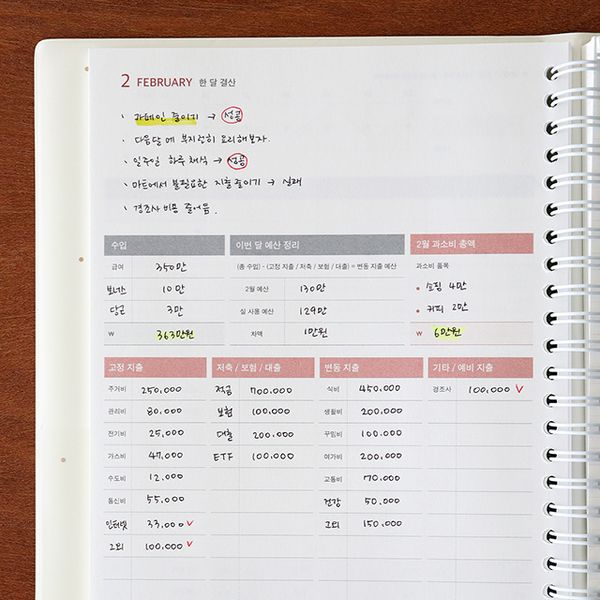 2 FEBRUARY 한 달 결산
· 카페인 줄이기 → 성공
· 다음달 에 부지런히 요리해보자.
· 일주일 하루 채식 → 성공
· 마트에서 불필요한 지출 줄이기 → 실패
· 경조사 비용 줄어듬.
수입 이번 달 예산 정리 2월 과소비 총액
급여 350만 (총 수입) - (고정 지출 / 저축 / 보험 / 대출) = 변동 지출 예산 과소비 품목
보너스 10만 2월 예산 130만 • 쇼핑 4만
당근 3만 실 사용 예산 129만 • 커피 2만
₩ 363만원 차액 1만원 ₩ 6만원
고정 지출 저축 / 보험 / 대출 변동 지출 기타 / 예비 지출
주거비 250,000 적금 700,000 식비 450,000 경조사 100,000 ✓
관리비 80,000 보험 100,000 생활비 200,000
전기비 25,000 대출 200,000 꾸밈비 100,000
가스비 47,000 ETF 100,000 여가비 200,000
수도비 12,000 교통비 70,000
통신비 55,000 건강 50,000
인터넷 33,000 ✓ 그외 150,000
그외 100,000 ✓